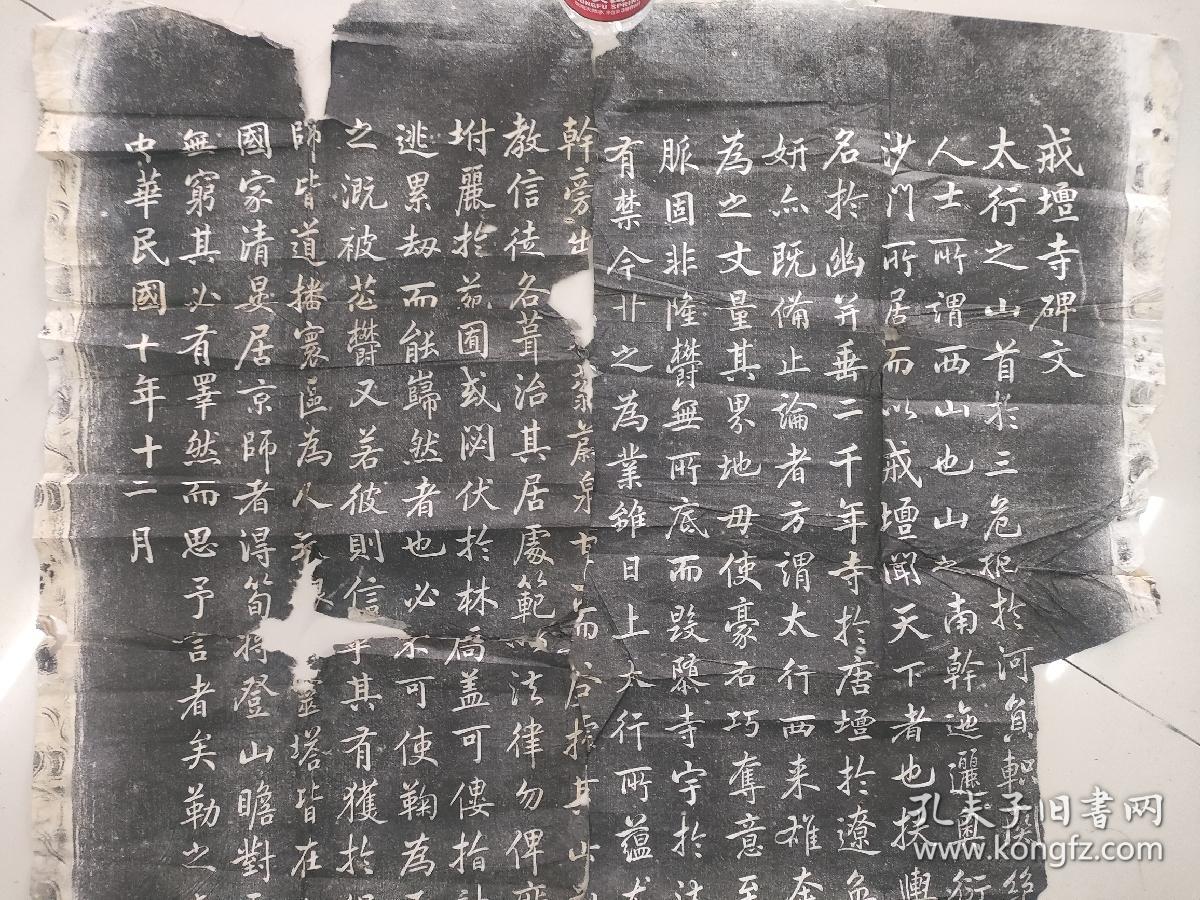 戒壇寺碑文
太行之山首於三危枙於河負軹
人士所謂西山也山之南幹迤邐奧衍
沙門所居而以戒壇聞天下者也按輿
名於幽并垂二千年寺於唐壇於遼
妍点既備止論者方謂太行西来雄奎
為之丈量其界地毋使豪右巧奪意至
脈固非隆欝無所底而毀隳寺宇於法
有禁今廾之為業雖日上太行所蘊
幹旁出 而谷指其
教信徒各葺治其居處範以法律勿俾
坿麗於茲囿或閟伏於林扃盖可僂指
逃累劫而能巋然者也必不可使鞠為
之溉被芘欝又若彼則信乎其有獲於
師皆道播寰區為人 靈塔皆在
國家清晏居京師者得筍將登山瞻對
無窮其必有睪然而思予言者矣勒之
中華民國十年十二月
KUNGFU SPRING
孔夫子旧书网
www.kongfz.com